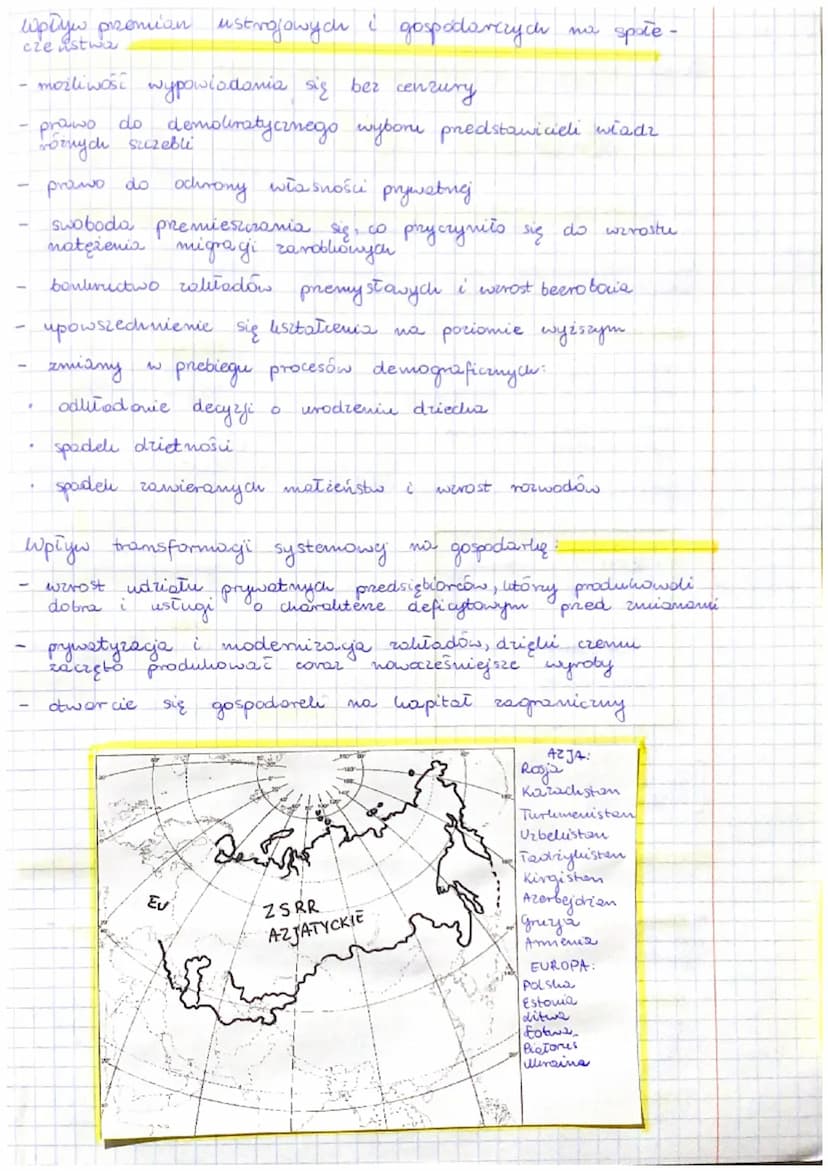 Wpływ przemian ustrojowych i gospodarczych na społe-
czeństwa
- możliwość wypowiadania się bez cenzury
- prawo do demokratycznego wyboru przedstawicieli władz
różnych szczebli
- prawo do ochrony własności prywatnej
- swoboda przemieszczania się, co przyczyniło się do wzrostu
natężenia migracji zarobkowych
- bankructwo zakładów przemysłowych i wzrost bezrobocia
- upowszechnienie się kształcenia na poziomie wyższym
- zmiany w przebiegu procesów demograficznych:
• odkładanie decyzji o urodzeniu dziecka
• spadek dzietności
• spadek zawieranych małżeństw i wzrost rozwodów
Wpływ transformacji systemowej na gospodarkę:
- wzrost udziału prywatnych przedsiębiorców, którzy produkowali
dobra i usługi o charakterze deficytowym przed zmianami
- prywatyzacja i modernizacja zakładów, dzięki czemu
zaczęto produkować coraz nowocześniejsze wyroby
- otwarcie się gospodarek na kapitał zagraniczny
AZJA:
Rosja
Kazachstan
Turkmenistan
Uzbekistan
Tadżykistan
Kirgistan
Azerbejdżan
Gruzja
Armenia
EUROPA:
Polska
Estonia
Litwa
Łotwa
Białoruś
Ukraina
EU
ZSRR
AZJATYCKIE